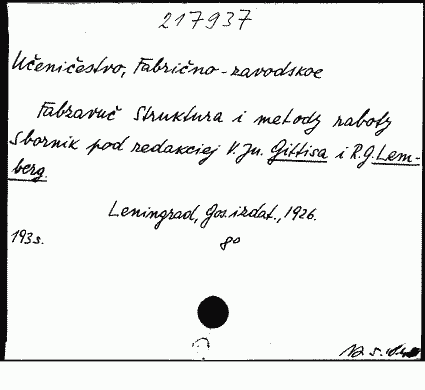 217937
Učeničestvo, Fabrično-zavodskoe
Fabzavuč Struktura i metody raboty
Sbornik pod redakciej V. Ju. Gittisa i R.G. Lem-
berg.
Leningrad, Gos. izdat., 1926.
193 s. 8°